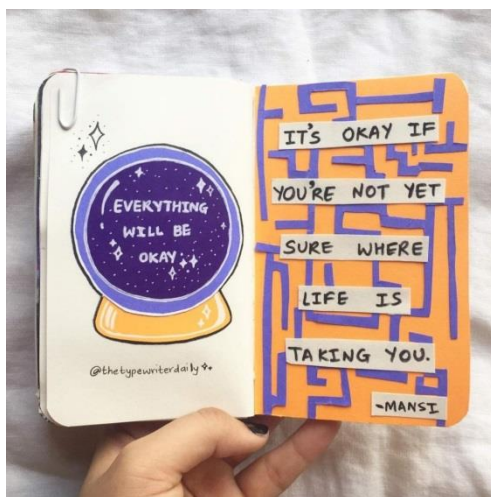 EVERYTHING
WILL BE
OKAY
@thetypewriterdaily
IT'S OKAY IF
YOU'RE NOT YET
SURE WHERE
LIFE IS
TAKING YOU.
-MANSI